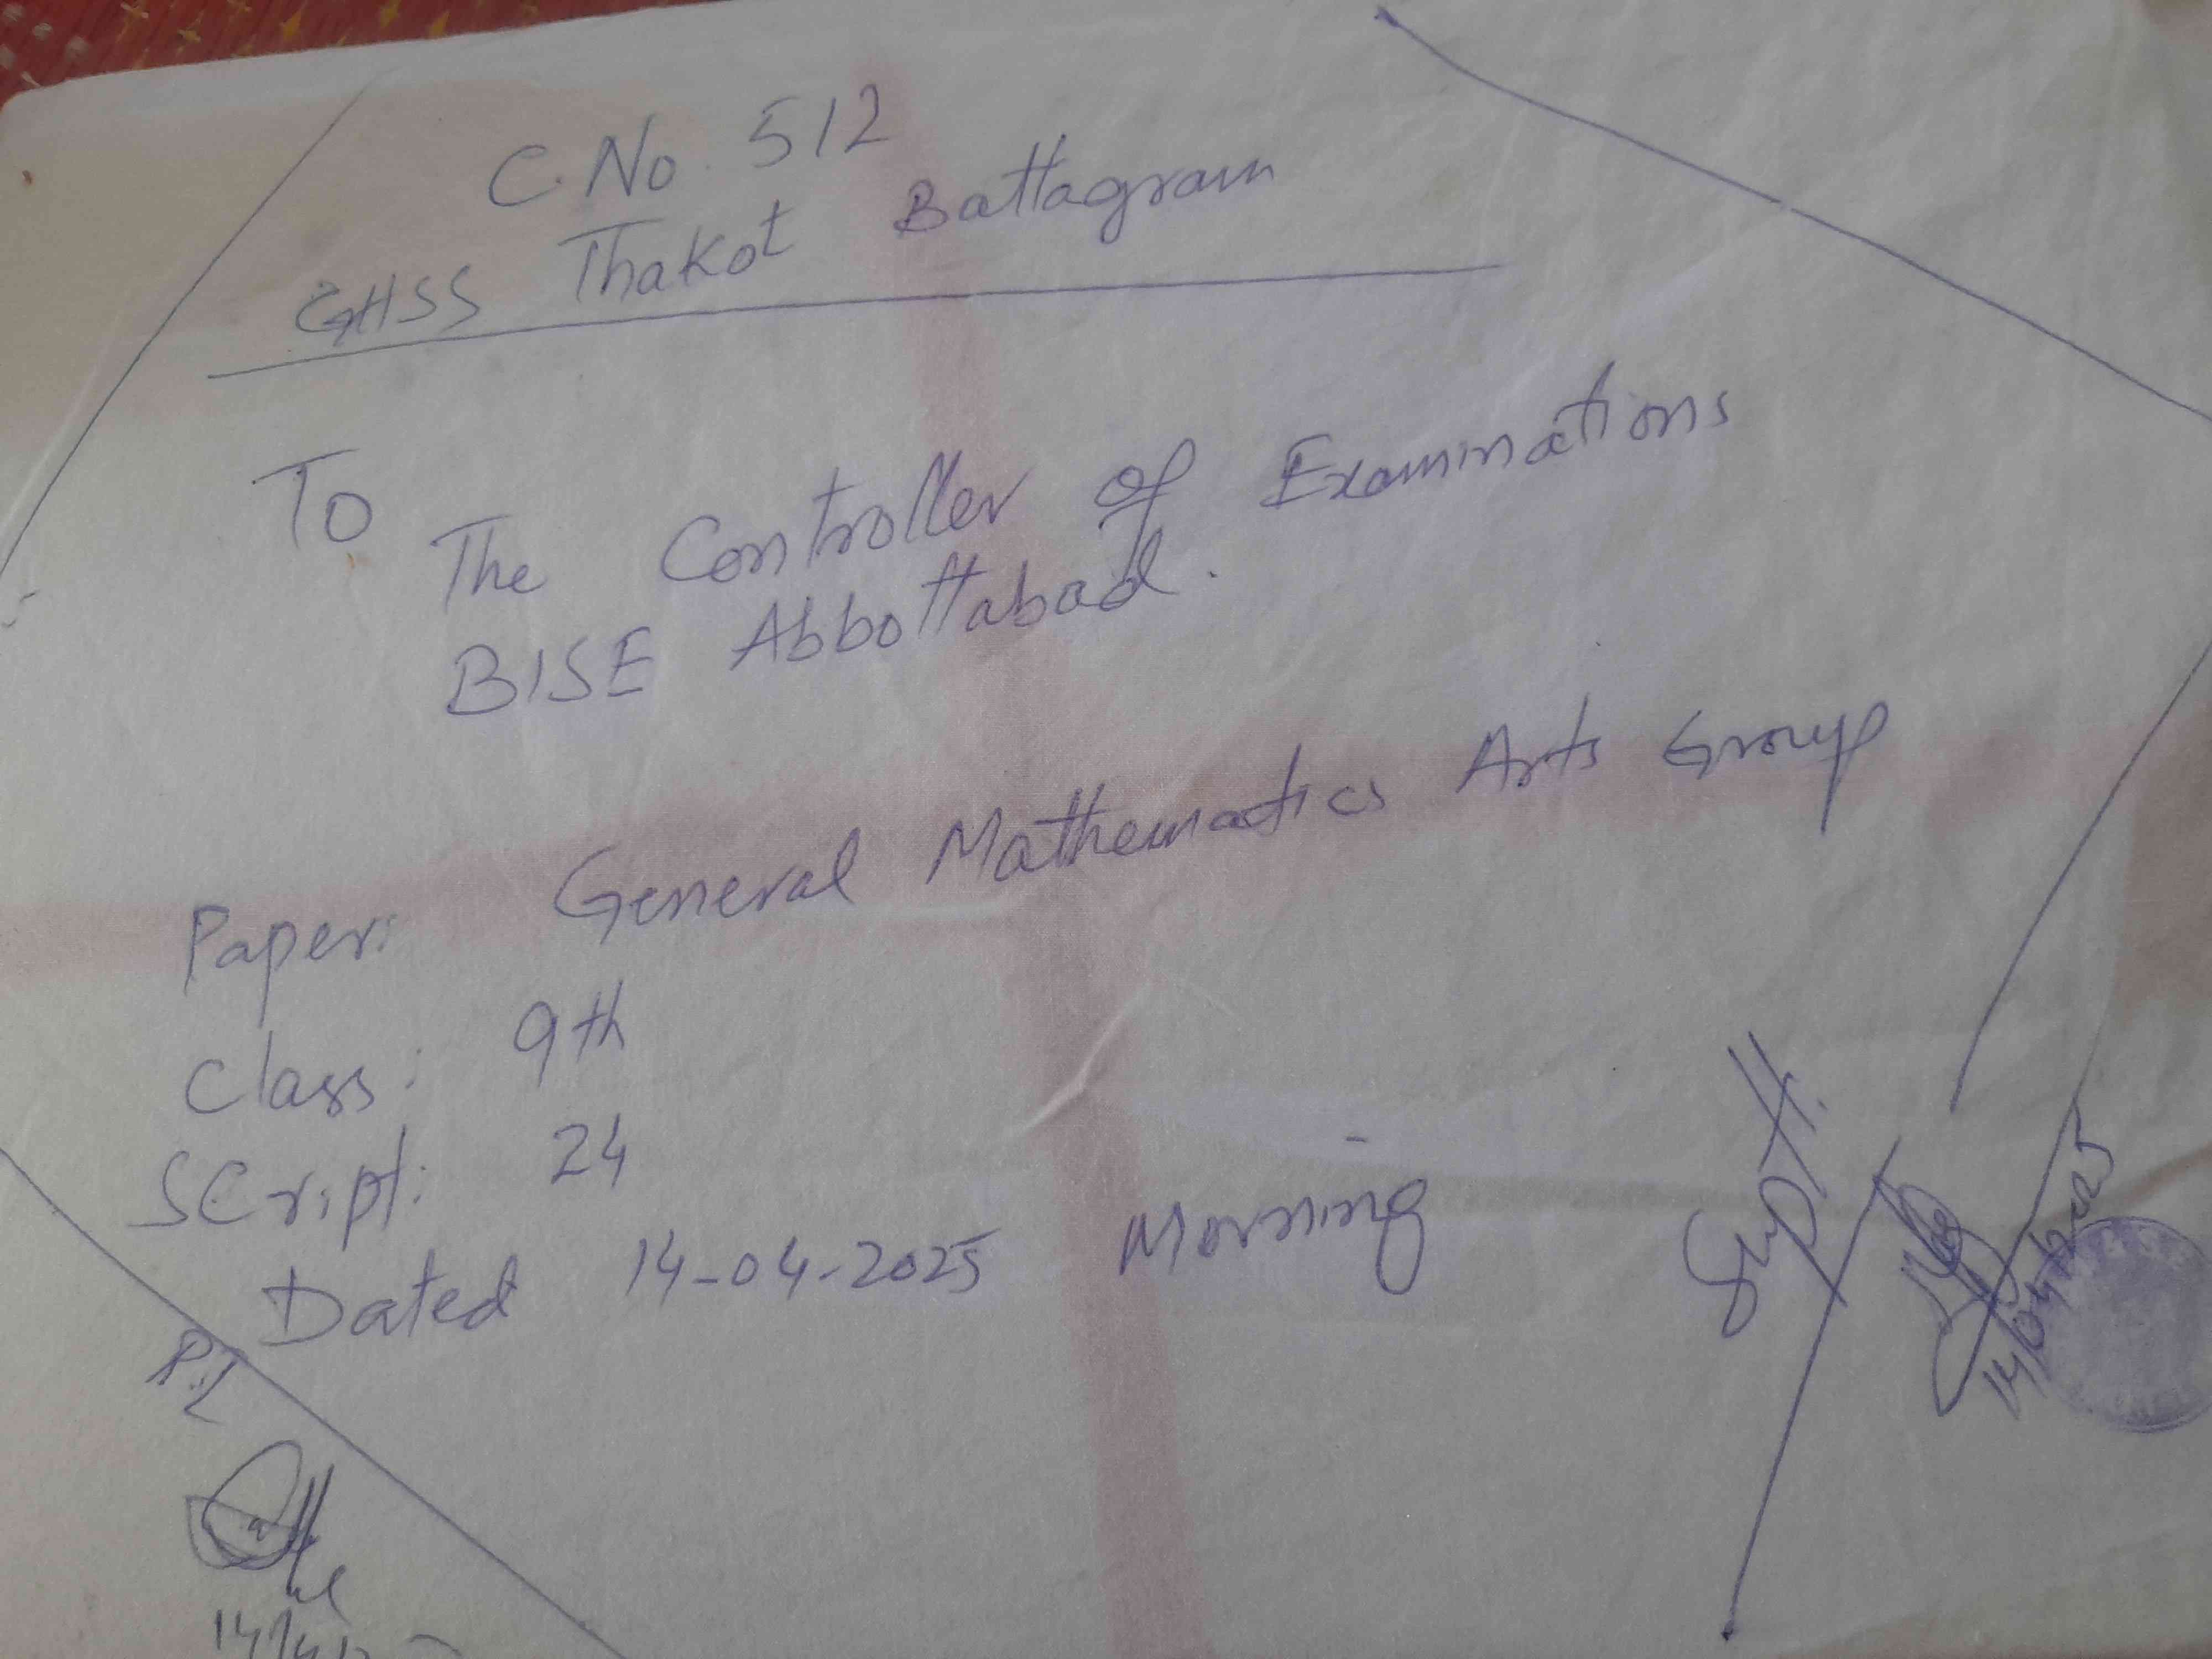 C.No. 512
GHSS Thakot Battagram
To
The Controller of Examinations
BISE Abbottabad.
Paper: General Mathematics Arts Group
Class: 9th
SCript: 24
Dated 14-04-2025 Morning
Supdt.
14/04/2025
R.I